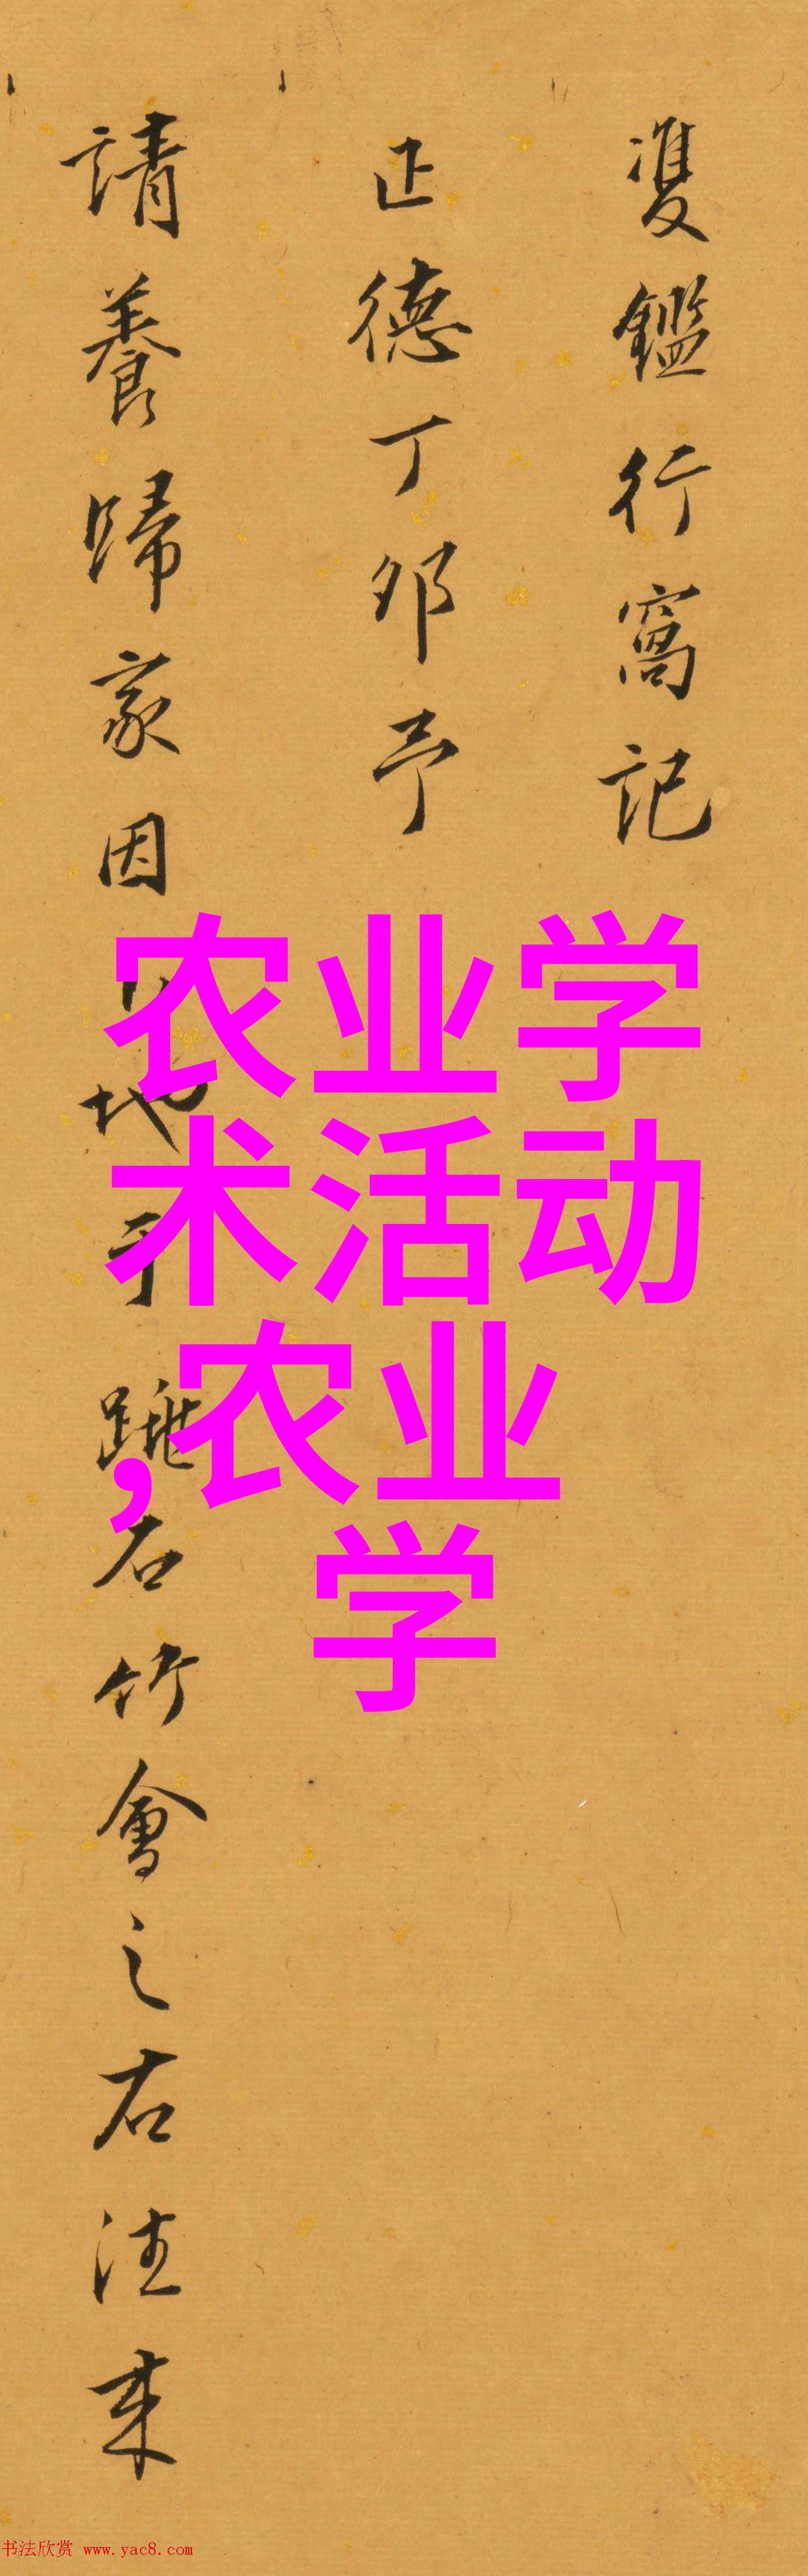 雙鑑行窩記
正德丁卯予
請養歸家因
地于
石竹會之右往来
农业学
术活动
,农业
学
书法欣赏 www.yac8.com